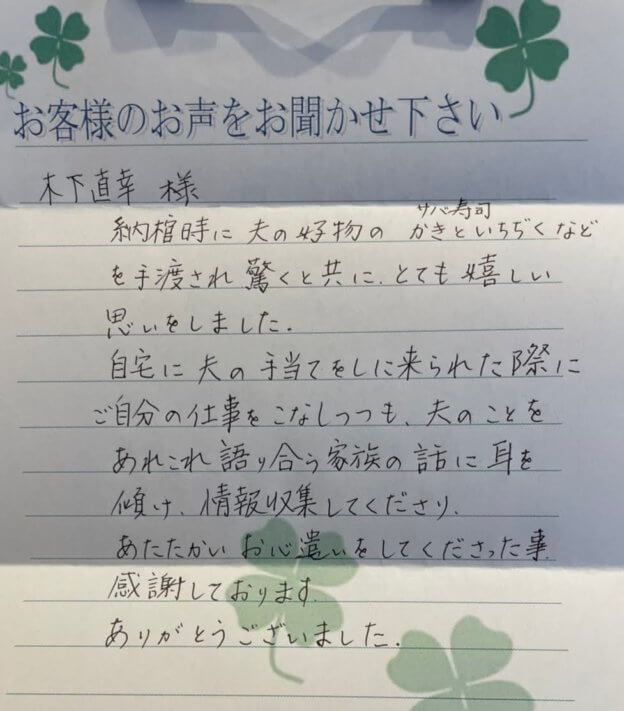 お客様のお声をお聞かせ下さい
木下直幸 様
納棺時に 夫の好物の サバ寿司
かきといちぢくなど
を手渡され 驚くと共に、とても嬉しい
思いをしました。
自宅に夫の手当てをしに来られた際に
ご自分の仕事をこなしつつも、夫のことを
あれこれ語り合う家族の話に耳を
傾け、情報収集してくださり、
あたたかいお心遣いをしてくださった事
感謝しております。
ありがとうございました。